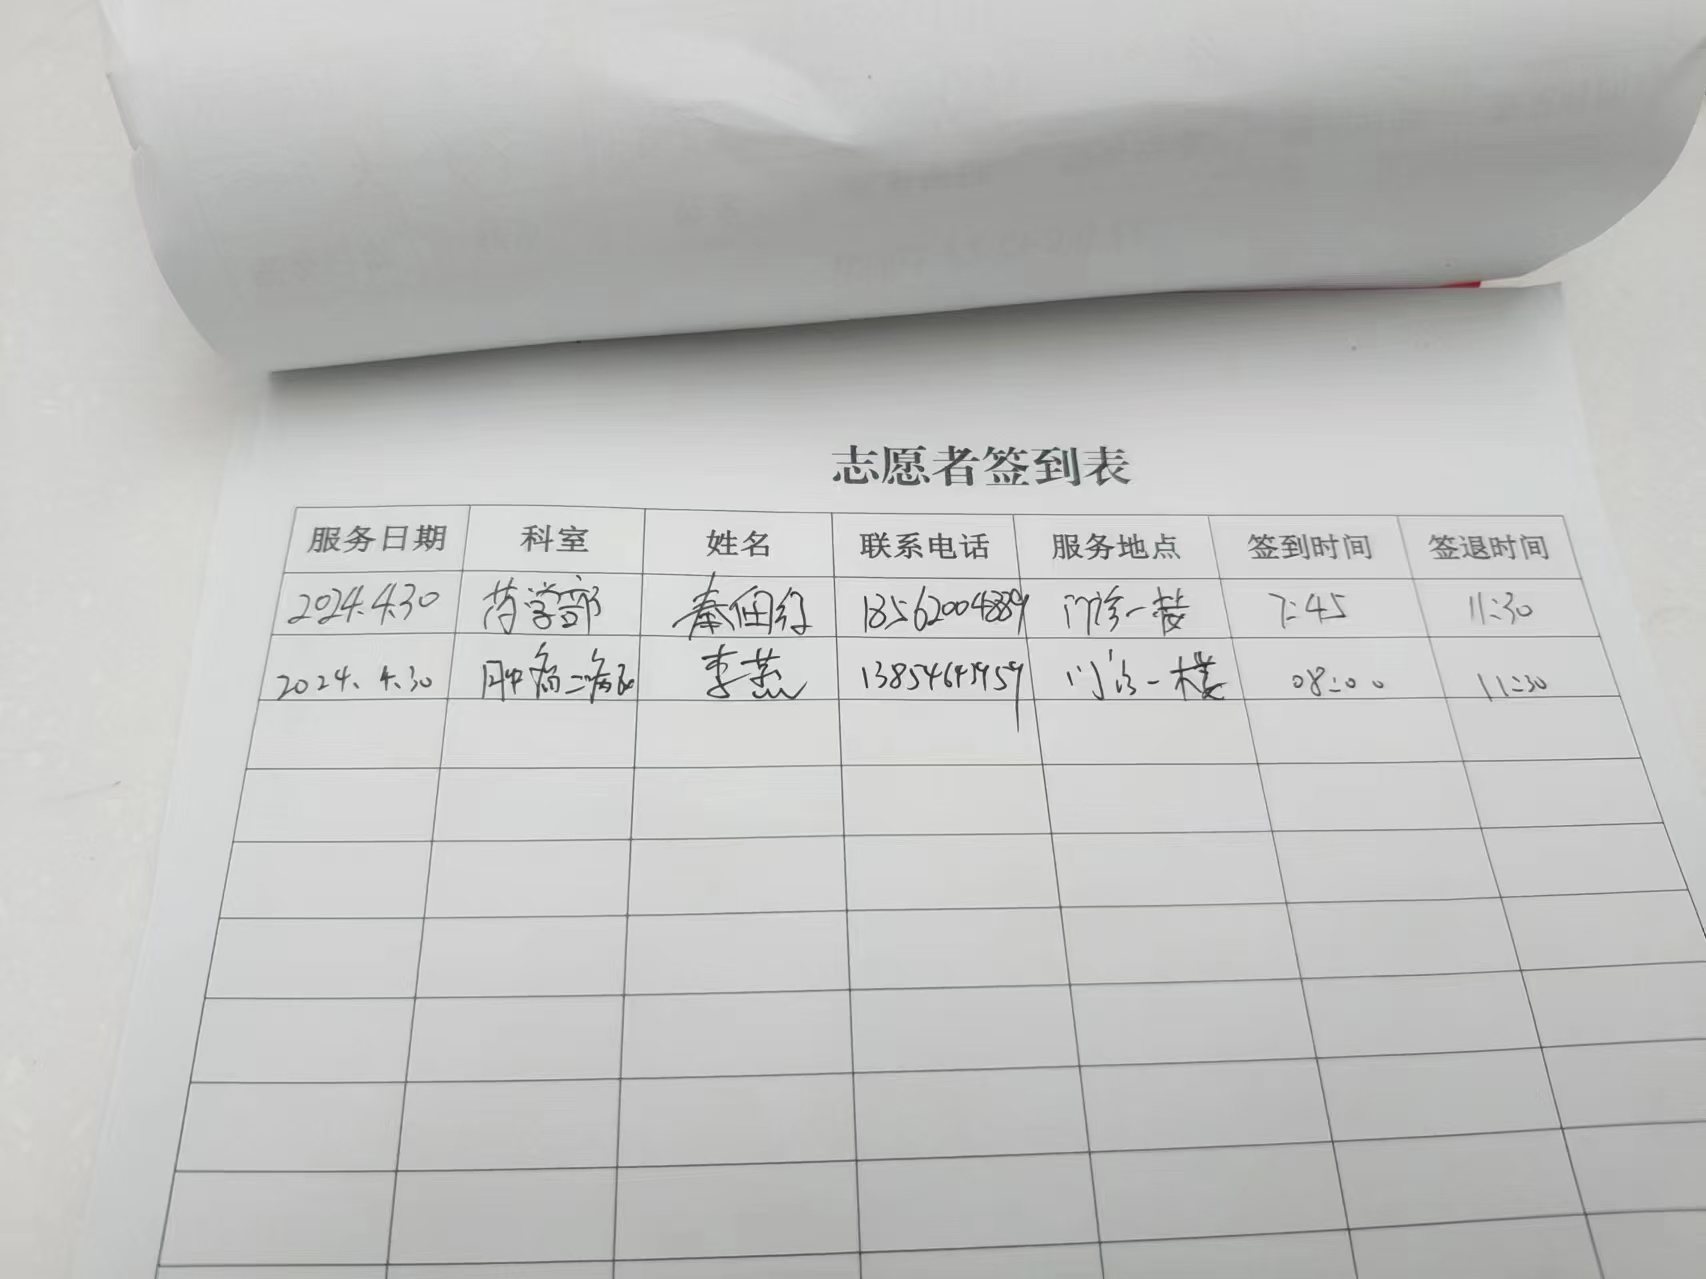 志愿者签到表
服务日期 科室 姓名 联系电话 服务地点 签到时间 签退时间
2024.4.30 药学部 门诊一楼 7:45 11:30
2024.4.30 肿瘤二病区 李燕 门诊一楼 08:00 11:30